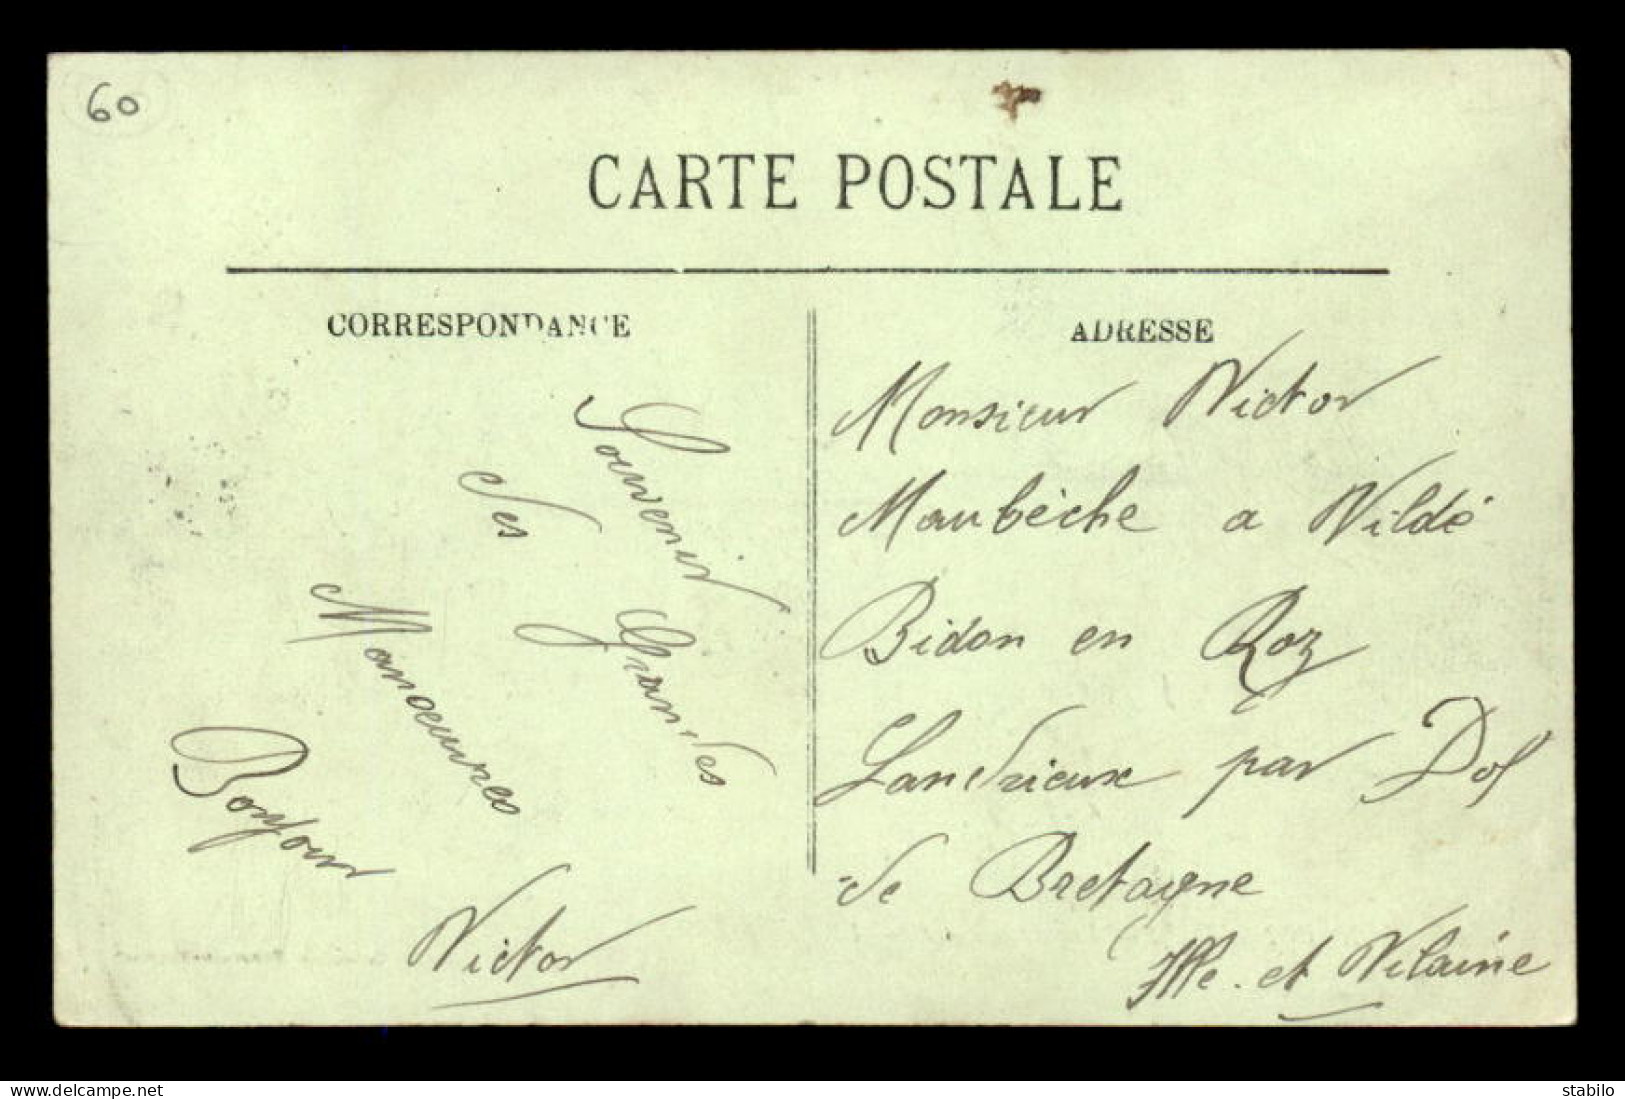 60
CARTE POSTALE
CORRESPONDANCE
Souvenir
des Grandes
Manoeuvres
Bonjour
Victor
ADRESSE
Monsieur Victor
Maubèche a Vildé
Bidon en Roz
Landrieux par Dol
de Bretagne
Ille-et Vilaine
delcampe.net
stabilo